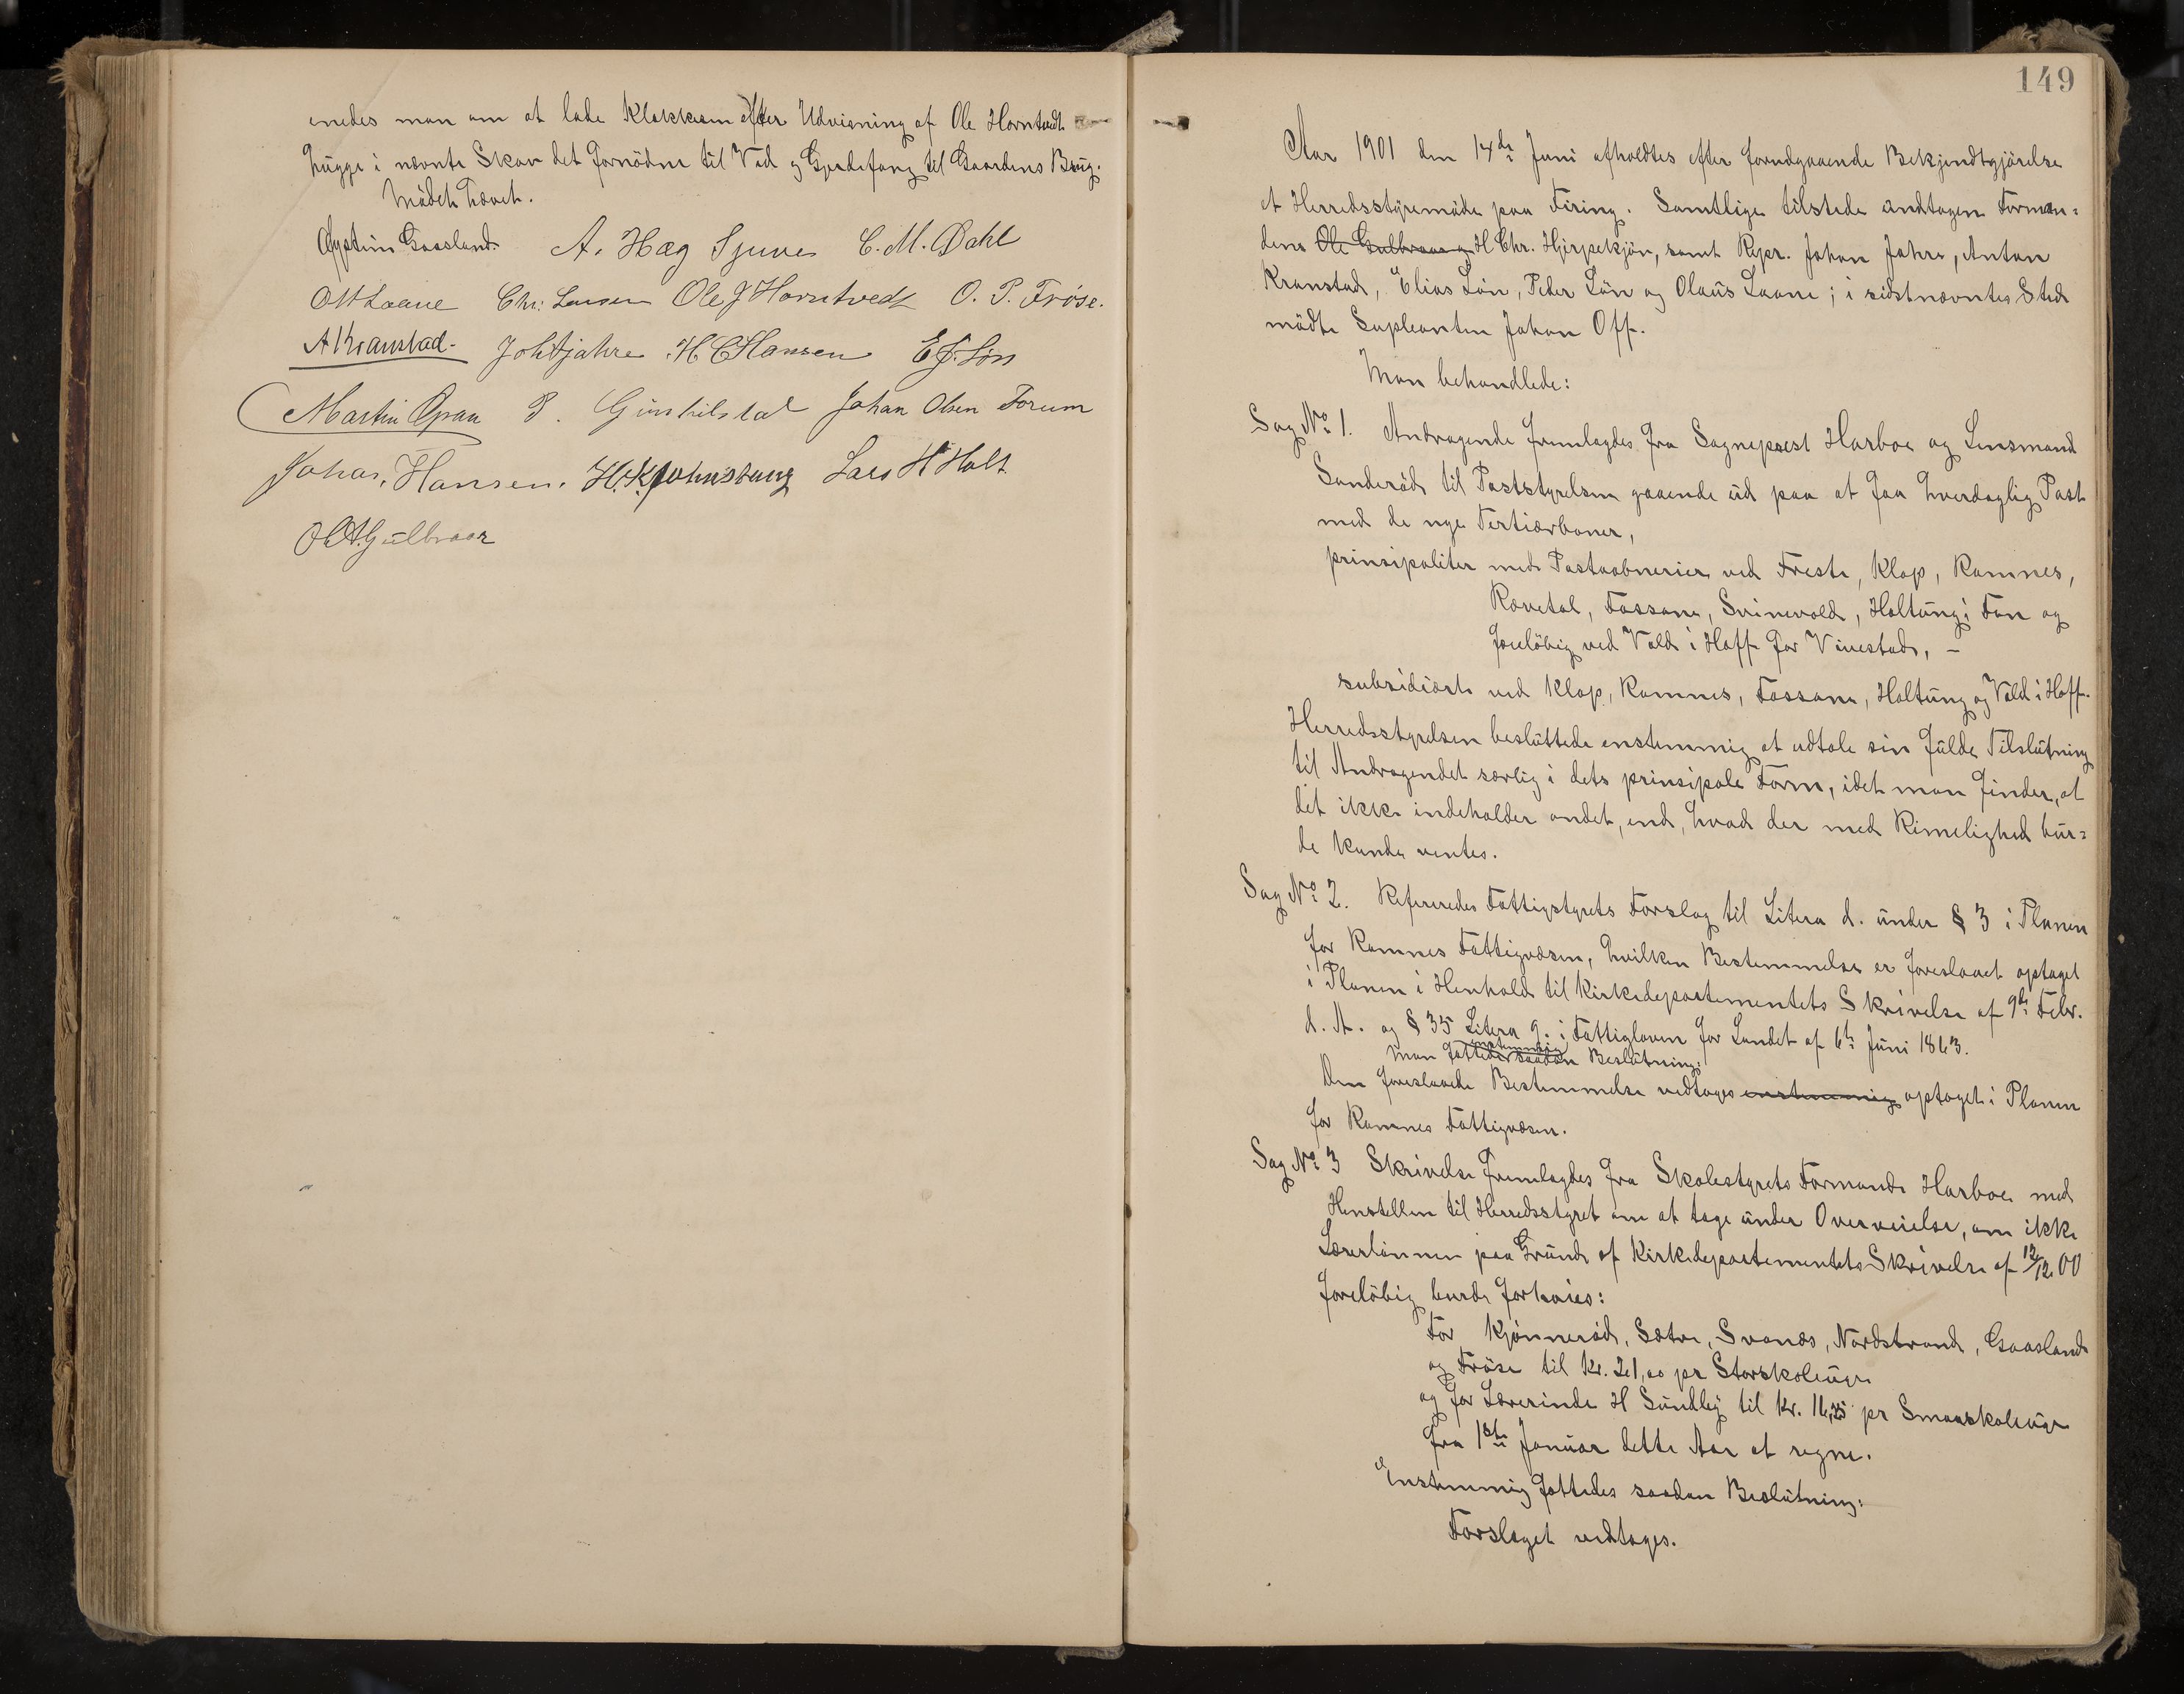 enedes man om at lade Klokkeren efter Udvisning af Ole Horntvedt
hugge i nævnte Skov det fornødne til Ved og Gjerdefang til Gaardens Brug.
Mødet hævet.
Øystein Gaasland A. Hæg Sjuve C. M. Dahl
Ott Laane Chr: Larsen Ole J Horntvedt O. P. Frøse.
A Kranstad. Joh Jahre H C Hansen E J. Løn
Martin Opsan P. Gunhilstad Johan Olsen Forum
Johan, Hansen. H. K. Johnsbaug Lars H Holt
O A Gulbraar
149
Aar 1901 den 14de Juni afholdtes efter forudgaaende Bekjendtgjørelse
et Herredsstyremøde paa Firing. Samtlige tilstede undtagen Forman=
dens Ole Gulbraar og H Chr. Hjerpekjøn, samt Repr. Johan Jahre, Anton
Kranstad, Elias Løn, Peder Løn og Olaus Laane; i sidstnævntes Sted
mødte Supleanten Johan Off.
Man behandlede:
Sag No 1. Andragende fremlagdes fra Sogneprest Harboe og Lensmand
Sanderød til Poststyrelsen gaaende ud paa at faa hverdaglig Post
med de nye Tertiærbaner,
prinsipaliter med Postaabnerier ved Freste, Klop, Ramnes,
Revetal, Fossane, Svinevold, Holtung i Fon og
foreløbig ved Vold i Hoff for Vivestad, –
subsidiært ved Klop, Ramnes, Fossane, Holtung og Vold i Hoff.
Herredsstyrelsen besluttede enstemmig at udtale sin fulde Tilslutning
til Andragendet særlig i dets prinsipale Form, idet man finder, at
det ikke indeholder andet, end, hvad der med Rimelighed bur=
de kunde ventes.
Sag No 2. Refereredes Fattigstyrets Forslag til Litera d. under § 3 i Planen
for Ramnes Fattigvæsen, hvilken Bestemmelse er foreslaaet optaget
i Planen i Henhold til Kirkedepartementets Skrivelse af 9de Febr.
d. A. og § 35 Litera 9. i Fattigloven for Landet af 6te Juni 1863.
enstemmig
Man fattede saadan Beslutning:
Den foreslaaede Bestemmelse vedtages enstemmig optaget i Planen
for Ramnes Fattigvæsen.
Sag No 3 Skrivelse fremlagdes fra Skolestyrets Formand Harboe med
Henstillen til Herredsstyret om at tage under Overveielse, om ikke
Lærerlønnen paa Grund af Kirkedepartementets Skrivelse af 12/12 00
foreløbig burde forhøies:
For Kjønnerød, Sætre, Svanæs, Nordstrand, Gaasland
og Frøse til Kr. 21,00 pr Storskoleuge
og for Lærerinde H Sundby til Kr. 16,25 pr Smaaskoleuge
fra 1ste Januar dette Aar at regne.
Enstemmig fattedes saadan Beslutning:
Forslaget vedtages.